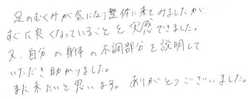 足のむくみが気になり整体に来てみましたが
すごく良くなっていることを実感できました。
又、自分の身体の不調部分を説明して
いただき助かりました。
また来たいと思います。ありがとうございました。